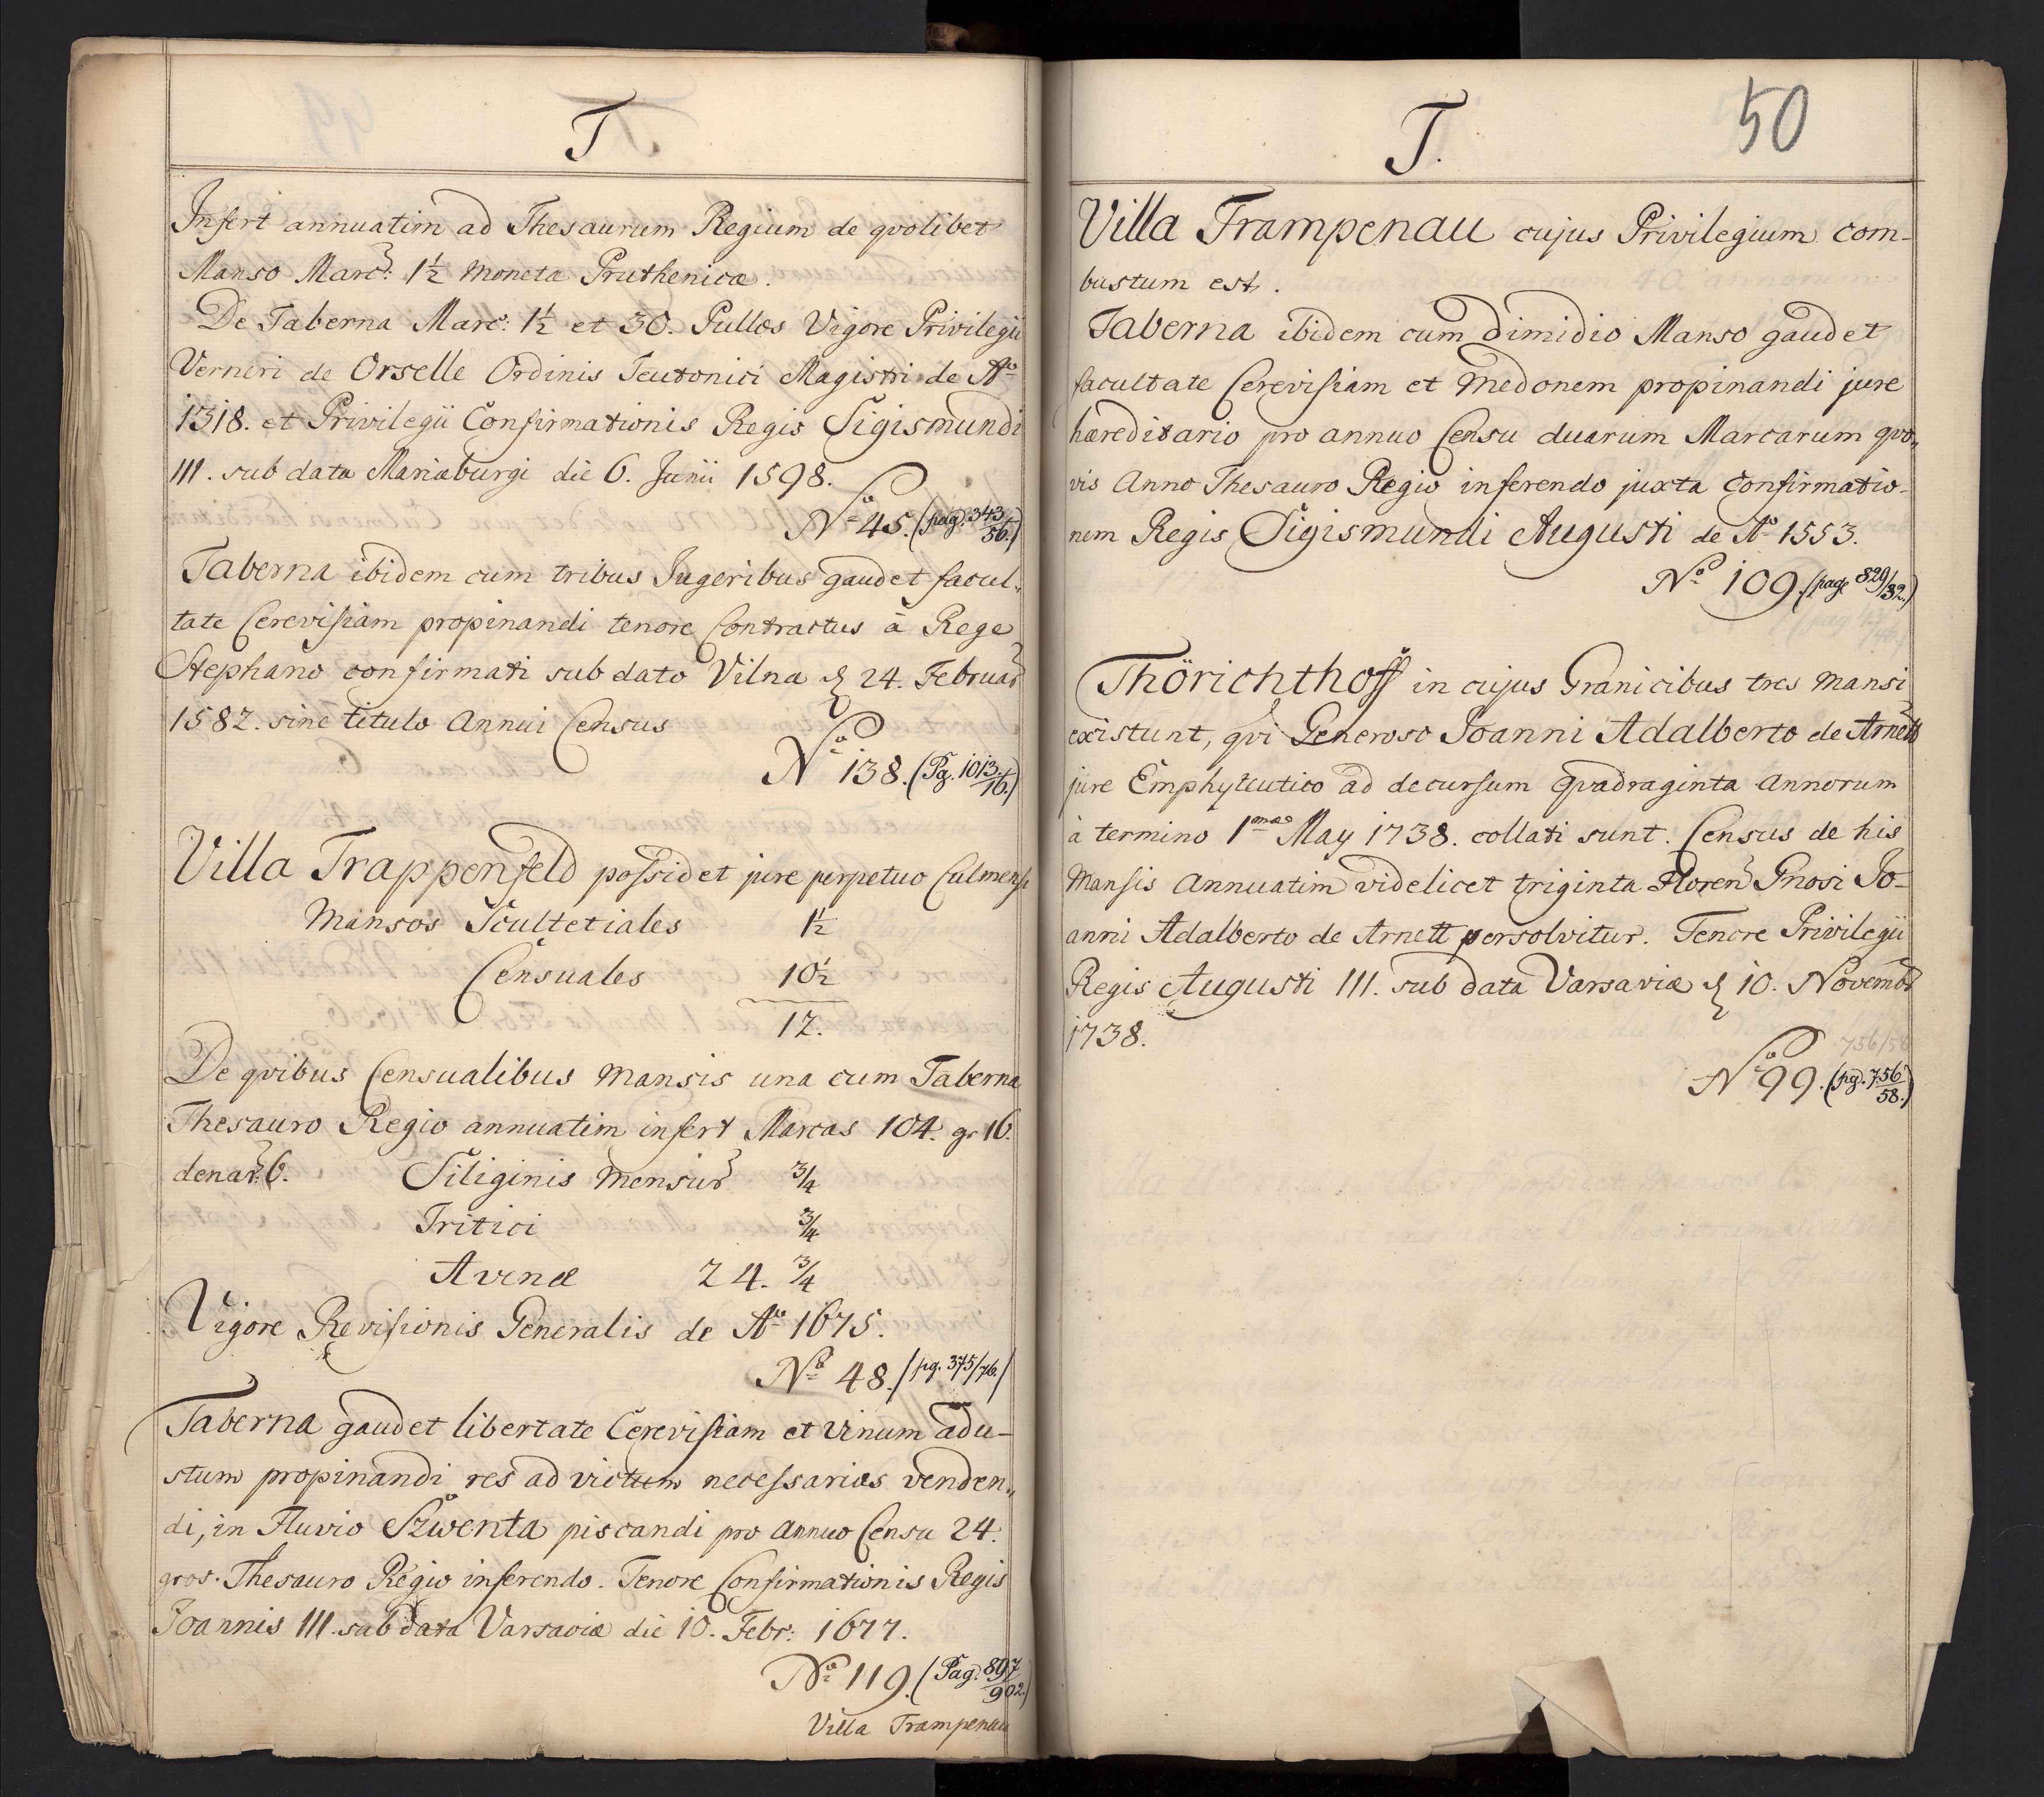 T
Infert annuatim ad Thesaurum Regium de qvolibet
Manso Marc: 1½ Moneta Pruthenicæ.
De Taberna Marc: 1½ et 30. Pullos Vigore Privilegii
Verneri de Orselle Ordinis Teutonici Magistri de Aº
1318. et Privilegii Confirmationis Regis Sigismundi
III. sub data Mariæburgi die 6. Junii 1598.
Nº 45. (pag. 343/56.)
Taberna ibidem cum tribus Jugeribus gaudet facul-
tate Cerevisiam propinandi tenore Contractus à Rege
Stephano confirmati sub dato Vilna d 24. Februar
1582. sine titulo Annui Census
Nº 138. (Pg. 1013/16.)
Villa Trappenfeld possidet jure perpetuo Culmensi
Mansos Scultetiales 1½
Censuales 10½
12.
De qvibus Censualibus Mansis una cum Taberna
Thesauro Regio annuatim infert Marcas 104. gr 16.
denar: 6. Siliginis Mensur ¾
Tritici ¾
Avenæ 24. ¾
Vigore Revisionis Generalis de Aº 1675.
Nº 48. /pg. 375/76./
Taberna gaudet libertate Cerevisiam et Vinum adu-
stum propinandi res ad victum necessarias venden-
di, in Fluvio Szwenta piscandi pro Annuo Censu 24.
gros. Thesauro Regio inferendo. Tenore Confirmationis Regis
Joannis III. sub data Varsaviæ die 10. Febr: 1677.
Nº 119. (Pag. 897/902.)
Villa Trampenau
T.
50
Villa Trampenau cujus Privilegium com-
bustum est.
Taberna ibidem cum dimidio Manso gaudet
facultate Cerevisiam et Medonem propinandi jure
hæreditario pro annuo Censu duarum Marcarum qvo-
vis Anno Thesauro Regio inferendo juxta Confirmatio-
nem Regis Sigismundi Augusti de Aº 1553.
Nº 109. (pag 829/32.)
Thörichthoff in cujus Granicibus tres Mansi
existunt, qvi Generoso Joanni Adalberto de Arnett
jure Emphyteutico ad decursum Qvadraginta Annorum
à termino 1mæ May 1738. collati sunt. Census de his
Mansis Annuatim videlicet triginta Floren Gnosi Jo-
anni Adalberto de Arnett persolvitur. Tenore Privilegii
Regis Augusti III. sub data Varsaviæ d 10. Novembr
1738.
756/58
Nº 99. (pg. 756/58.)